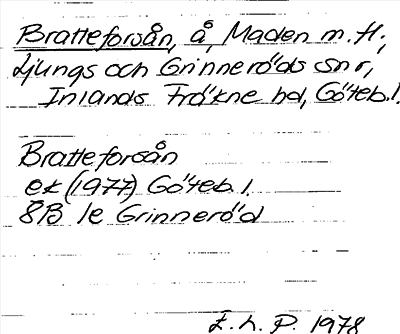 Bratteforsån, å, Maden m. fl.,
Ljungs och Grinneröds snr,
Inlands Fräkne hd, Göteb. l.
Bratteforsån
ek (1977) Göteb. l.
8B 1e Grinneröd
E. L. P. 1978